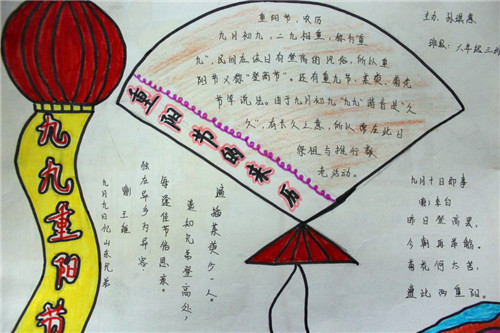 九九重阳节
重阳节的来历
重阳节，农历
九月初九，二九相重，称为重
九"，民间在该日有登高的风俗，所以重
阳节又称"登高节"。还有重九节、茱萸、菊花
节等说法。由于九月初九"九九"谐音是"久
久"，有长久之意，所以常在此日
祭祖与推行敬
老活动。
主办：孙琪惠
班级：六年级三班
九月九日忆山东兄弟
唐 王维
独在异乡为异客
每逢佳节倍思亲。
遥知兄弟登高处，
遍插茱萸少一人。
九月十日即事
唐 李白
昨日登高罢，
今朝再举觞。
菊花何太苦，
遭此两重阳。